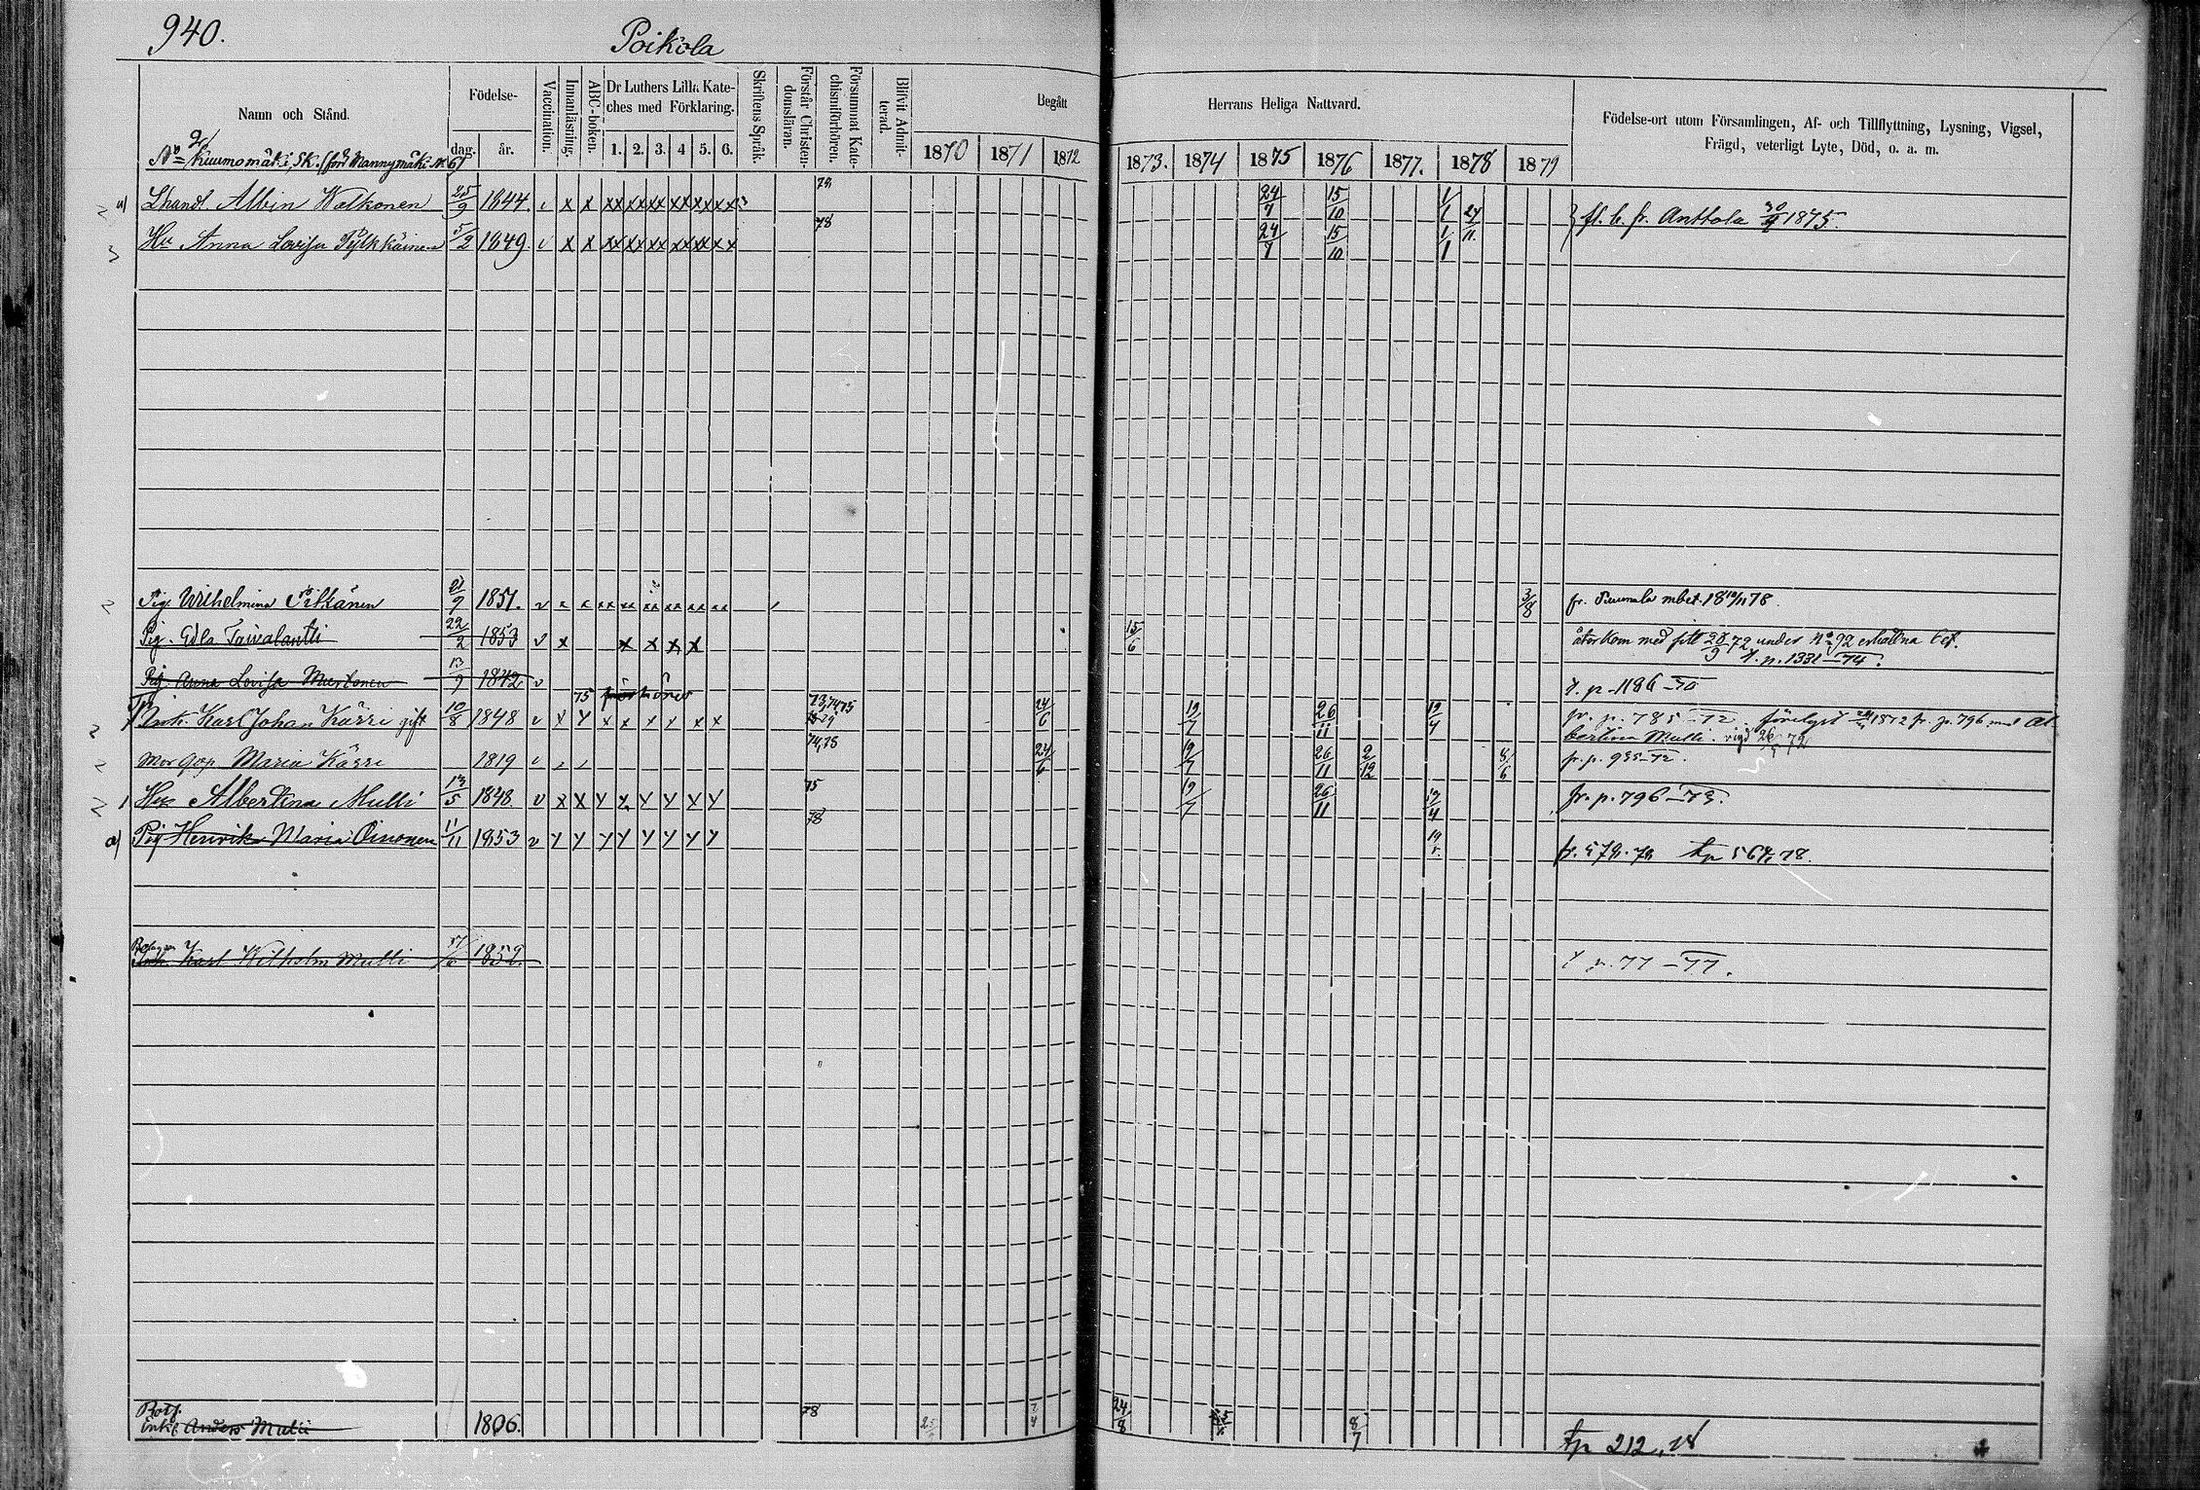 940.
Poikola
Namn och Stånd.
Födelse-
dag.
år.
Vaccination.
Innanläsning.
ABC-boken.
Dr Luthers Lilla Kate-
ches med Förklaring.
1. 2. 3. 4 5. 6.
Skriftens Språk.
Förstår Christen-
domsläran.
Försummat Kate-
chismiförhören.
Blifvit Admit-
terad.
Begått
Herrans Heliga Nattvard.
1870 1871 1872
1873. 1874 1875 1876 1877. 1878 1879
Födelse-ort utom Församlingen, Af- och Tillflyttning, Lysning, Vigsel,
Frägd, veterligt Lyte, Död, o. a. m.
No 2 Kuumomäki, SK. (förd Nannymäki N. 6)
a) Lhandl. Albin Walkonen 25/9 1844. v x x xx xx xx xx xx xx 24/7 15/10 1/1 fl. b. fr. Anttola 30/9 1875.
78
Hu Anna Lovisa Pylkkäinen 5/2 1849. v x x xx xx xx xx xx xx 24/7 15/10 1/1 24/11
Pig. Wilhelmina Pitkänen 21/9 1851. v 3/8 fr. Puumala mbet. 18 19/11 78.
Pig. Edla Taivalantti 22/2 1853 v x x x x x 15/6 återkom med fitt 28/9 72 under No 92 erhållna bet.
t. p. 1331-74.
Pig. Anna Lovisa 13/9 1842 v t. p. 1186-70
75 73,74 75
Inh. Karl Johan Kärri gift 10/8 1848 v x y x x x x x x 24/6 19/7 26/11 19/4 fr. p. 785-72. förelyst 1872 fr. p. 796 med Al-
bertina Mulli. vigd 26/ 72
74,75
Mor Maria Kärri 1819 v 24/6 19/7 26/11 2/12 8/6 fr. p. 935-72.
75
Hu Albertina Mulli 13/5 1848. v x x y x y y x y 19/7 26/11 19/4 fr. p. 796-73.
78
a) Pig Henrika Maria Oinonen 11/11 1853 v y y y y y y y y 19 tp 564, 78.
Karl Wilhelm Mulli 1852. t p. 77-77.
Enkl. Anders Mulli 1806. 78 24/8 8/7 tp 212, 78